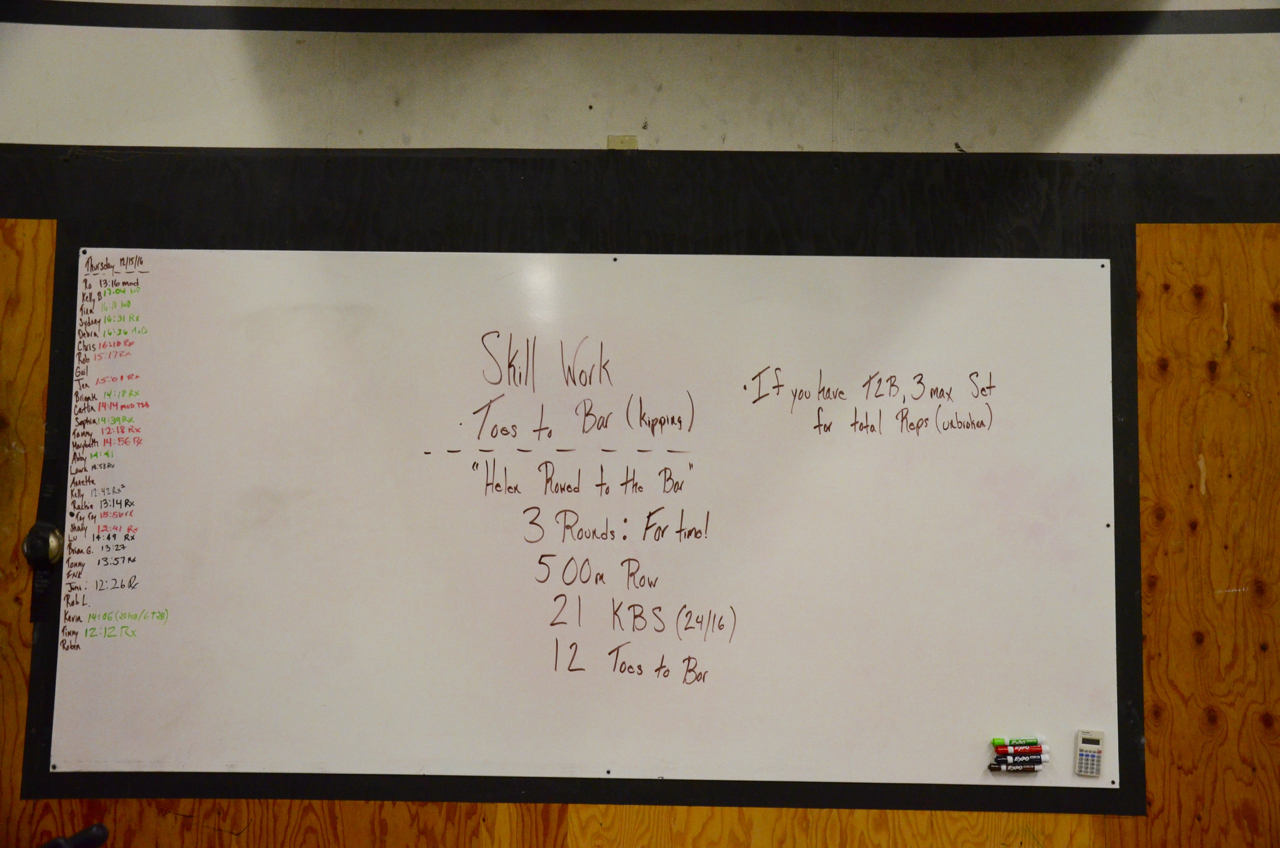 Thursday 12/15/16
Ro 13:16 mod
Kelly B 17:04
Tina
Sydney 16:31 Rx
Debra 16:36
Chris 16:18 Rx
Rob 15:17 Rx
Gail
Jen 15:01 Rx
14:18 Rx
Caitlin 14:14 mod
Sophia 14:39 Rx
Tammy 12:18 Rx
Marybeth 14:56 Rx
Abby 14:41
Laura
Annette
Kelly 12:42 Rx
13:14 Rx
Tay Tay 15:56 Rx
Shady 12:41 Rx
Lu 14:49 Rx
Brian G. 13:27
Tommy 13:57 Rx
Joni: 12:26 Rx
Rob L.
Kevin 14:06
12:12 Rx
Robin
Skill Work
· Toes to Bar (kipping)
"Helen Rowed to the Bar"
3 Rounds: For time!
500m Row
21 KBS (24/16)
12 Toes to Bar
· If you have T2B, 3 max Set
for total Reps (unbroken)
EXPO
EXPO
EXPO